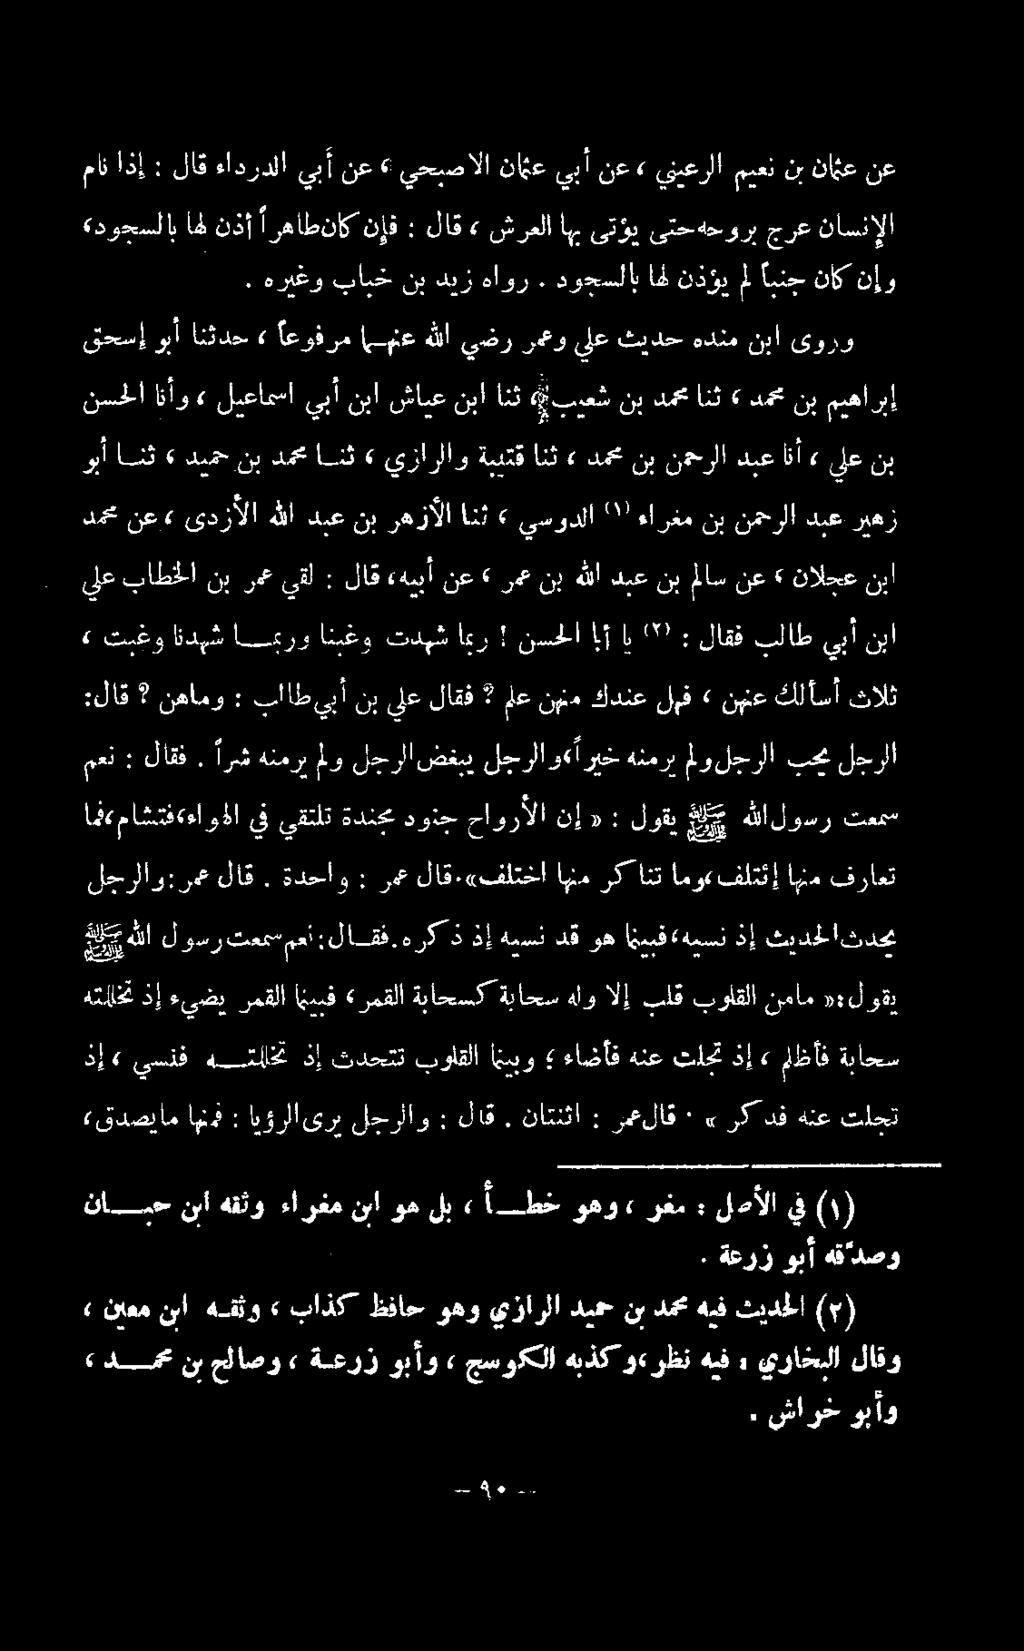 عن عثمان بن نعيم الرعيني ، عن أبي عثمان الاصبحي ، عن أبي الدرداء قال : إذا نام
الإنسان عرج بروحه حتى يؤتى بها العرش ، قال : فإن كان طاهراً أذن لها بالسجود،
وإن كان جنباً لم يؤذن لها بالسجود . رواه زيد بن خباب وغيره .
وروى ابن منده حديث علي وعمر رضي الله عنهما مرفوعاً ، حدثنا أبو إسحق
إبراهيم بن محمد ، ثنا محمد بن شعيب ، ثنا ابن عياش ابن أبي اسماعيل ، وأنا الحسن
بن علي ، أنا عبد الرحمن بن محمد ، ثنا قتيبة والرازي ، ثنا محمد بن حميد ، ثنا أبو
زهير عبد الرحمن بن مغراء (١) الدوسي ، ثنا الأزهر بن عبد الله الأزدى ، عن محمد
ابن عجلان ، عن سالم بن عبد الله بن عمر ، عن أبيه، قال : لقي عمر بن الخطاب علي
ابن أبي طالب فقال : (٢) يا أبا الحسن ! ربما شهدت وغبنا وربما شهدنا وغبت ،
ثلاث أسألك عنهن ، فهل عندك منهن علم ؟ فقال علي بن أبي طالب : وماهن ؟ قال:
الرجل يحب الرجل ولم ير منه خيراً، والرجل يبغض الرجل ولم ير منه شراً . فقال : نعم
سمعت رسول الله ﷺ يقول : « إن الأرواح جنود مجندة تلتقي في الهواء، فتشام، فما
تعارف منها إئتلف، وما تناكر منها اختلف». قال عمر : واحدة . قال عمر: والرجل
يحدث الحديث إذ نسيه، فبينما هو قد نسيه إذ ذكره. فقال: نعم سمعت رسول الله ﷺ
يقول: « مامن القلوب قلب إلا وله سحابة كسحابة القمر، فبينما القمر يضيء إذ تخللته
سحابة فأظلم ، إذ تجلت عنه فأضاء ؛ وبينما القلوب تتحدث إذ تخللته فنسي ، إذ
تجلت عنه فدكر » . قال عمر : اثنتان . قال : والرجل يرى الرؤيا : فمنها مايصدق،
(١) في الأصل : مغر ، وهو خطأ ، بل هو ابن مغراء وثقه ابن حبان
وصدَّقه أبو زرعة .
(٢) الحديث فيه محمد بن حميد الرازي وهو حافظ كذاب ، وثقه ابن معين ،
وقال البخاري : فيه نظر، وكذبه الكوسج ، وأبو زرعة ، وصالح بن محمد ،
وأبو خراش .
– ٩٠ –